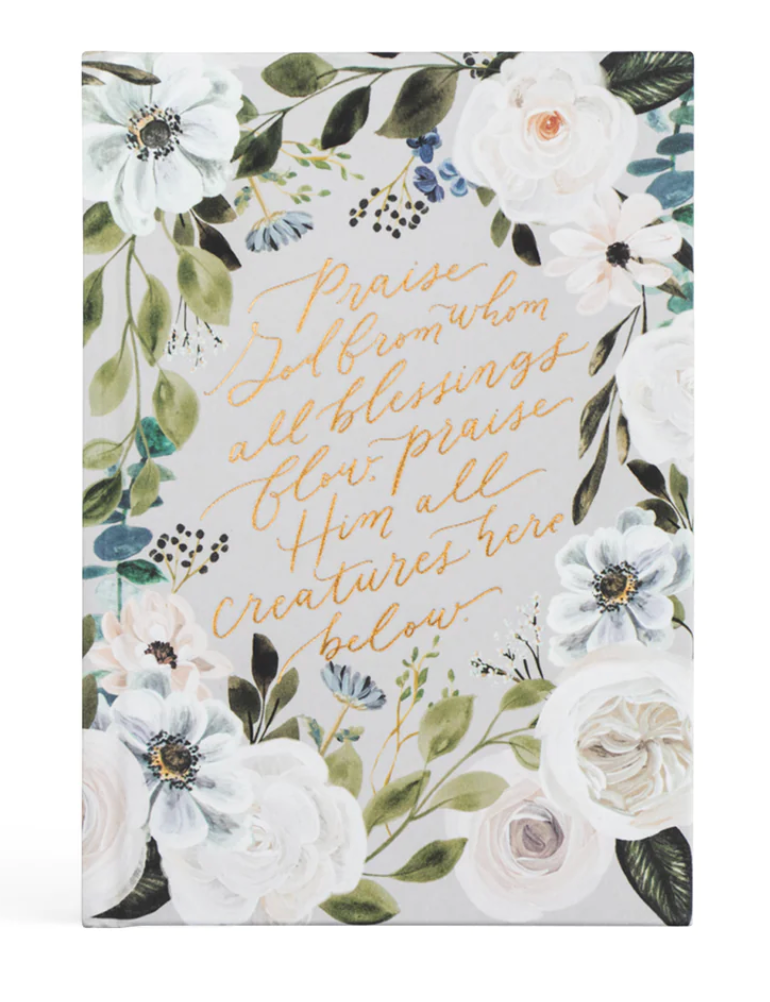 Praise
God from whom
all blessings
flow; praise
Him all
creatures here
below.